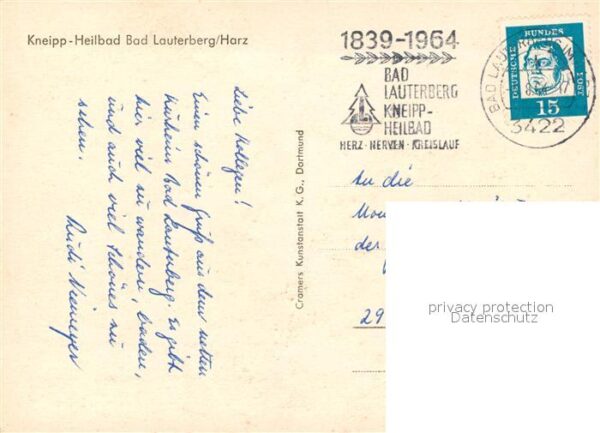 Kneipp-Heilbad Bad Lauterberg/Harz
Liebe Kollegen!
Einen schönen Gruß aus dem netten
Kurheim Bad Lauterberg. Es gibt
hier viel zu wandern, baden,
und auch viel Schönes zu
sehen.
Rudi Niemeyer
Cramers Kunstanstalt K.G., Dortmund
1839-1964
BAD
LAUTERBERG
KNEIPP-
HEILBAD
HERZ · NERVEN · KREISLAUF
BAD LAUTERBERG IM
3422
DEUTSCHE BUNDES POST
15
An die
der
29
privacy protection
Datenschutz